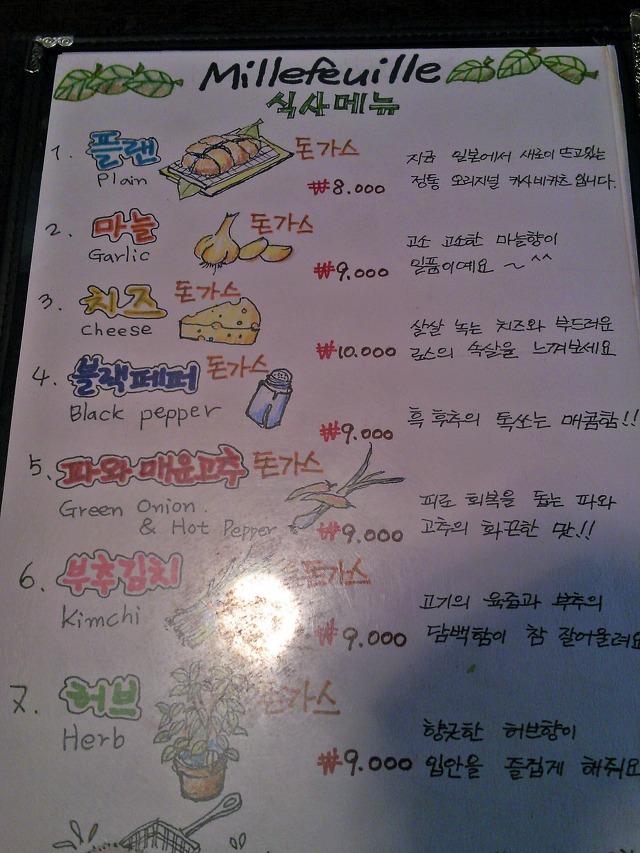 Millefeuille
식사메뉴
1. 플랜 돈가스
Plain
₩8.000
지금 일본에서 새로이 뜨고있는
정통 오리지널 카사네카츠 입니다.
2. 마늘 돈가스
Garlic
₩9.000
고소 고소한 마늘향이
일품이예요 ~ ^^
3. 치즈 돈가스
cheese
₩10.000
살살 녹는 치즈와 부드러운
로스의 속살을 느껴보세요
4. 블랙페퍼 돈가스
Black pepper
₩9.000
흑 후추의 톡쏘는 매콤함!!
5. 파와 매운고추 돈가스
Green Onion
& Hot Pepper
₩9.000
피로 회복을 돕는 파와
고추의 화끈한 맛!!
6. 부추김치 돈가스
Kimchi
₩9.000
고기의 육즙과 부추의
담백함이 참 잘어울려요
7. 허브 돈가스
Herb
₩9.000
향긋한 허브향이
입안을 즐겁게 해줘요